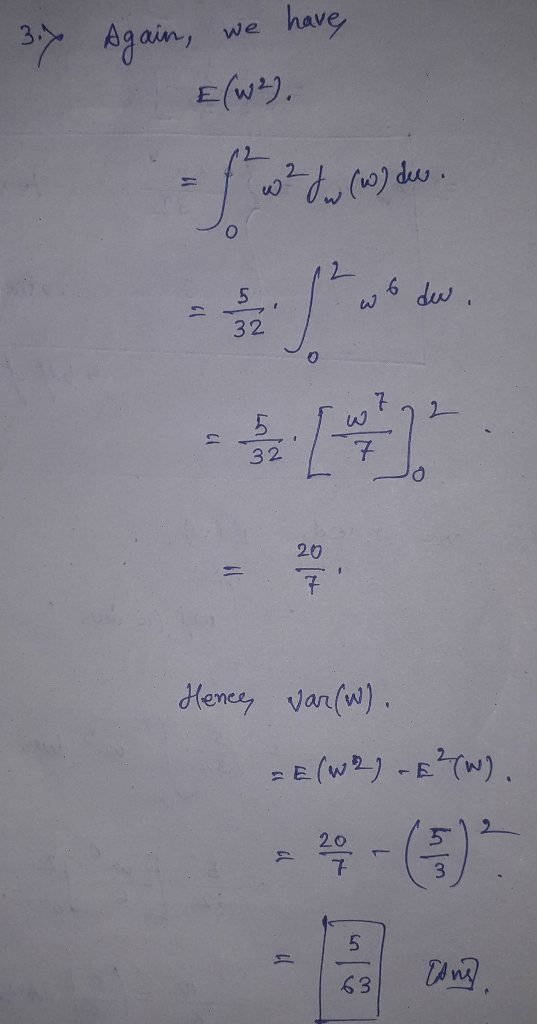 3.> Again, we have,
E(w²).
= ∫₀² w² f_w (w) dw.
= 5/32 · ∫₀² w⁶ dw.
= 5/32 · [w⁷/7]₀².
= 20/7.
Hence, Var(W).
= E(W²) - E²(W).
= 20/7 - (5/3)².
= 5/63 [Ans].